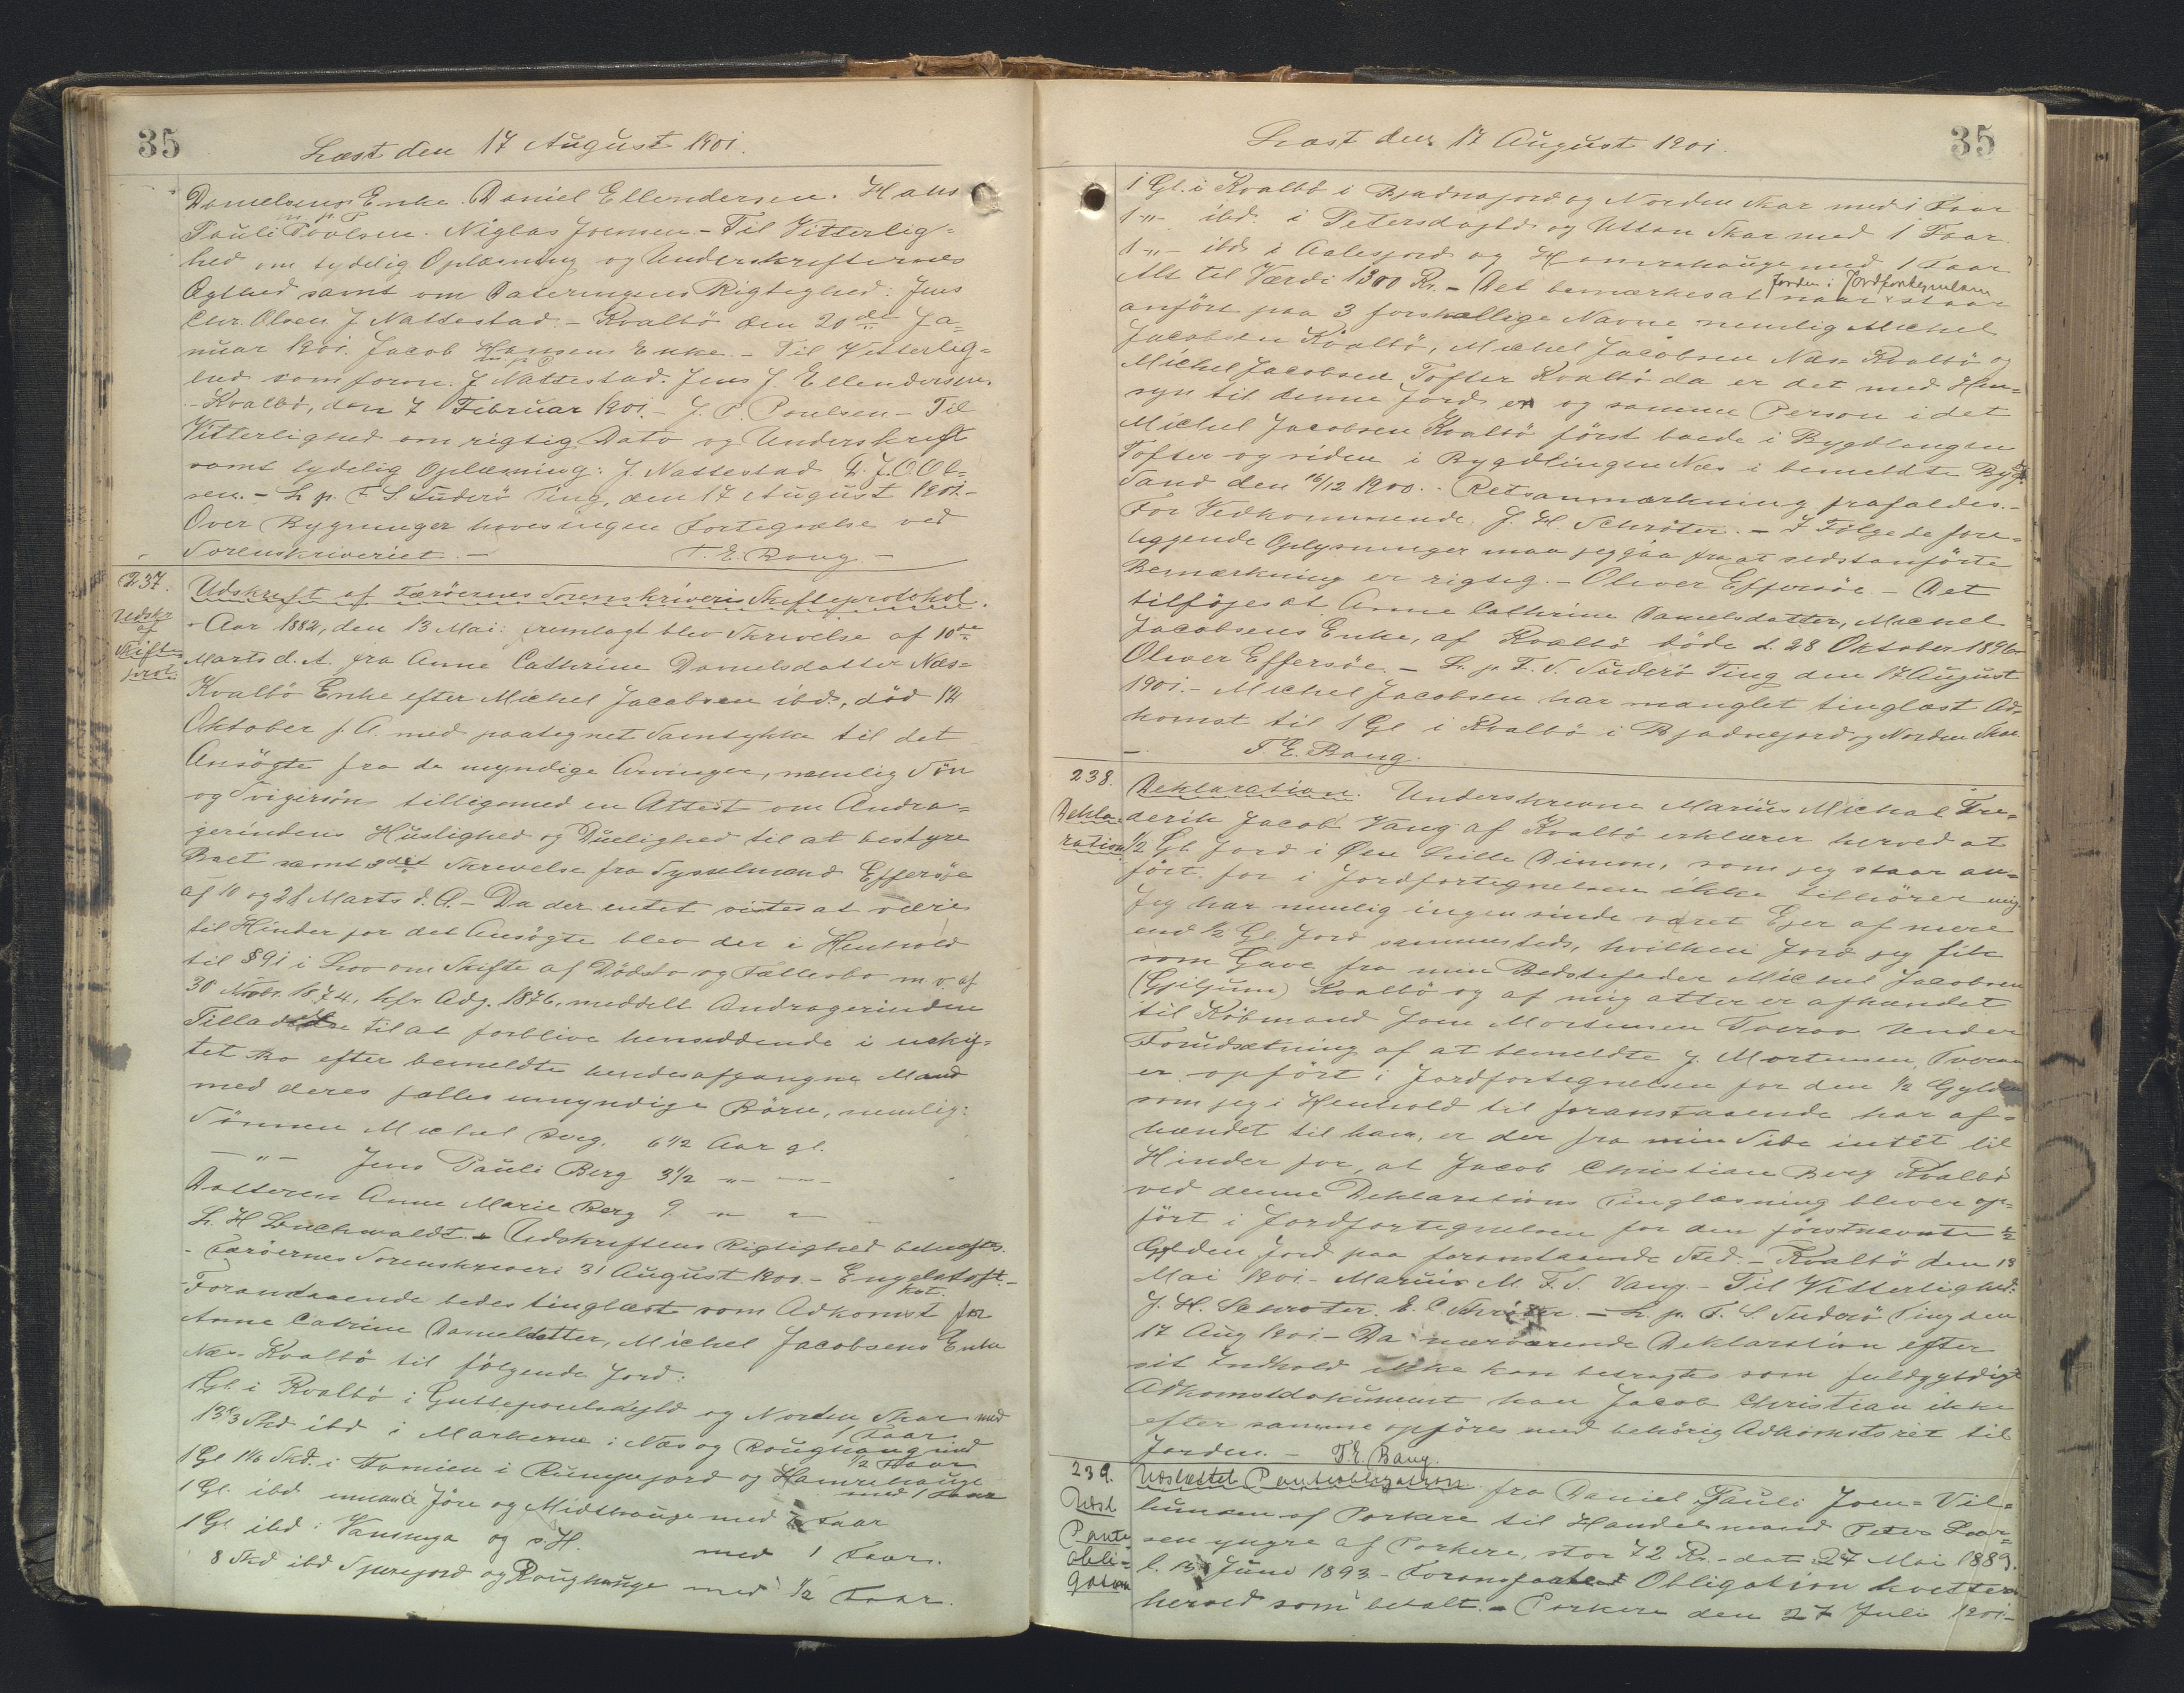 35
Læst den 17 August 1901.
Danielsens Enke. Daniel Ellendersen. Hans
m. p. P.
Pauli Poulsen. Niglas Joensen. - Til Vitterlig=
hed om tydelig Oplæsning og Underskrifternes
Ægthed samt om Dateringens Rigtighed: Jens
Chr. Olsen. J. Nattestad. - Kvalbö den 20de Ja=
nuar 1901. Jacob Hansens Enke. - Til Vitterlig=
m. p. P.
hed som foran. J. Nattestad. Jens J. Ellendersen.
- Kvalbö, den 7 Februar 1901. - J. P. Poulsen - Til
Vitterlighed om rigtig Dato og Underskrift
samt tydelig Oplæsning: J. Nattestad. J. O Ol=
sen. - L. p. F. S. Suderö Ting, den 17 August 1901. -
Over Bygninger haves ingen Fortegnelse ved
Sorenskriveriet. - T. E. Bang. -
237.
Udskr
af
Skifte
prot.
Udskrift af Færöernes Sorenskriveris Skifteprotokol.
- Aar 1882, den 13 Mai: fremlagt blev Skrivelse af 10de
Marts d. A. fra Anne Cathrine Danielsdatter Næs=
Kvalbö Enke efter Michel Jacobsen ibd., död 12
Oktober f. A. med paategnet Samtykke til det
Ansögte fra de myndige Arvinger, nemlig Sön
og Svigersön tilligemed en Attest om Andra=
gerindens Huslighed og Duelighed til at bestyre
Boet samt Skrivelse fra Sysselmand Effersöe
af 10 og 28 Marts d. A. - Da der intet vistes at være
til Hinder for det Ansögte blev der i Henhold
til § 91 i Lov om Skifte af Dödsbo og Fællesbo m. v. af
30 Novbr. 1874, kfr. Adg. 1876, meddelt Andragerinden
Tilladelse til at forblive hensiddende i uskif=
tet Bo efter bemeldte hendes afgangne Mand
med deres fælles umyndige Börn, nemlig:
Sönnen Michel Berg, 6 1/2 Aar gl.
- " - Jens Pauli Berg 3 1/2 " - " -
Datteren Anne Marie Berg 9 " "
L. H. Buchwaldt. - Udskriftens Rigtighed bekræftes.
- Færöernes Sorenskriveri 31 August 1900. - Engelstoft. -
kst.
- Foranstaaende bedes tinglæst som Adkomst for
Anne Catrine Danielsdatter, Michel Jacobsens Enke
Næs. Kvalbö til fölgende Jord:
1 Gl. i Kvalbö i Guttepoulsdejld og Norden Skar med
1 Faar.
13 1/3 Skd ibd i Markerne i Næs og Roughaug med
1/2 Faar
1 Gl 1 1/6 Skd. i Famien i Rungajord og Hamrehauge
med 1 Faar
1 Gl. ibd innante Jöre og Midthauge med 1 Faar
1 Gl. ibd i Vaninga og s. H. med 1 Faar.
8 Skd ibd Spurejord og Roughauge med 1/2 Faar.
35
Læst den 17 August 1901.
1 Gl. i Kvalbö i Bjadnajord og Norden Skar med 1 Faar
1 - " - ibd. i Petersdajld og Uttan Skar med 1 Faar.
1 - " - ibd i Aalesjord og Hamrahauge med 1 Faar
Alt til Værdi 1300 Kr. - Det bemærkes at naar Jorden i Jordfortegnelsen staar
anfört paa 3 forskellige Navne nemlig Michel
Jacobsen Kvalbö, Michel Jacobsen Næs Kvalbö og
Michel Jacobsen Tofter Kvalbö da er det med Hen=
syn til denne Jord en og samme Person idet
Michel Jacobsen Kvalbö först boede i Bygdlengden
Tofter og siden i Bygdlingen Næs i bemeldte Bygd.
Sand den 16/12 1900. - Retsanmærkning frafaldes. -
For Vedkommende. J. H. Schröter. - I Fölge de fore=
liggende Oplysninger maa jeg gaa fra at sidstanförte
Bemærkning er rigtig. - Oliver Effersöe. - Det
tilföjes at Anne Cathrine Danielsdatter, Michel
Jacobsens Enke, af Kvalbö döde d. 28 Oktober 1896
Oliver Effersöe. - L. p. F. S. Suderö Ting den 17 August
1901. - Michel Jacobsen har manglet tinglæst Ad=
komst til 1 Gl. i Kvalbö i Bjadnejord og Norden Skar.
- T. E. Bang.
238.
Dekla=
ration.
Deklaration. Underskrevne Marius Michal Fre=
derik Jacob Vang af Kvalbö erklærer herved at
1/2 Gl. Jord i Öen Lille Dimon, som jeg staar an=
fört for i Jordfortegnelsen ikke tilhörer mig.
Jeg har nemlig ingensinde været Ejer af mere
end 1/2 Gl. Jord sammesteds, hvilken Jord jeg fik
som Gave fra min Bedstefader Michel Jacobsen
(Giljum) Kvalbö og af mig atter er afhændet
til Köbmand Joen Mortensen Tveraa. Under
Forudsætning af at bemeldte J. Mortensen, Tveraa
er opfört i Jordfortegnelsen for den 1/2 Gylden
som jeg i Henhold til foranstaaende har af=
hændet til ham, er der fra min Side intet til
Hinder for, at Jacob Christian Berg Kvalbö
ved denne Deklarations Tinglæsning bliver op=
fört i Jordfortegnelsen for den förstnævnte 1/2
Gylden Jord paa foranstaaende Sted. - Kvalbö den 18
Mai 1901. - Marius M. F. J. Vang. - Til Vitterlighed:
J. H. Schröter. E. C. Schröter. - L. p. F. S. Suderö Ting den
17 Aug 1901 - Da nærværende Deklaration efter
sit Indhold ikke kan betragtes som fuldgyldigt
Adkomstdokument kan Jacob Christian ikke
efter samme opföres med behörig Adkomstsret til
Jorden. - T. E. Bang.
239.
Udsl
Pante
obli=
gation
Udslettet Panteobligation fra Daniel Pauli Joen= Vil=
lumsen af Porkere til Handelsmand Peter Lar=
sen yngre af Porkere, stor 72 Kr. - dat. 27 Mai 1889.
l. 13 Juni 1893. - Foranstaaende Obligation kvitteres
herved som betalt. - Porkere den 27 Juli 1901 -